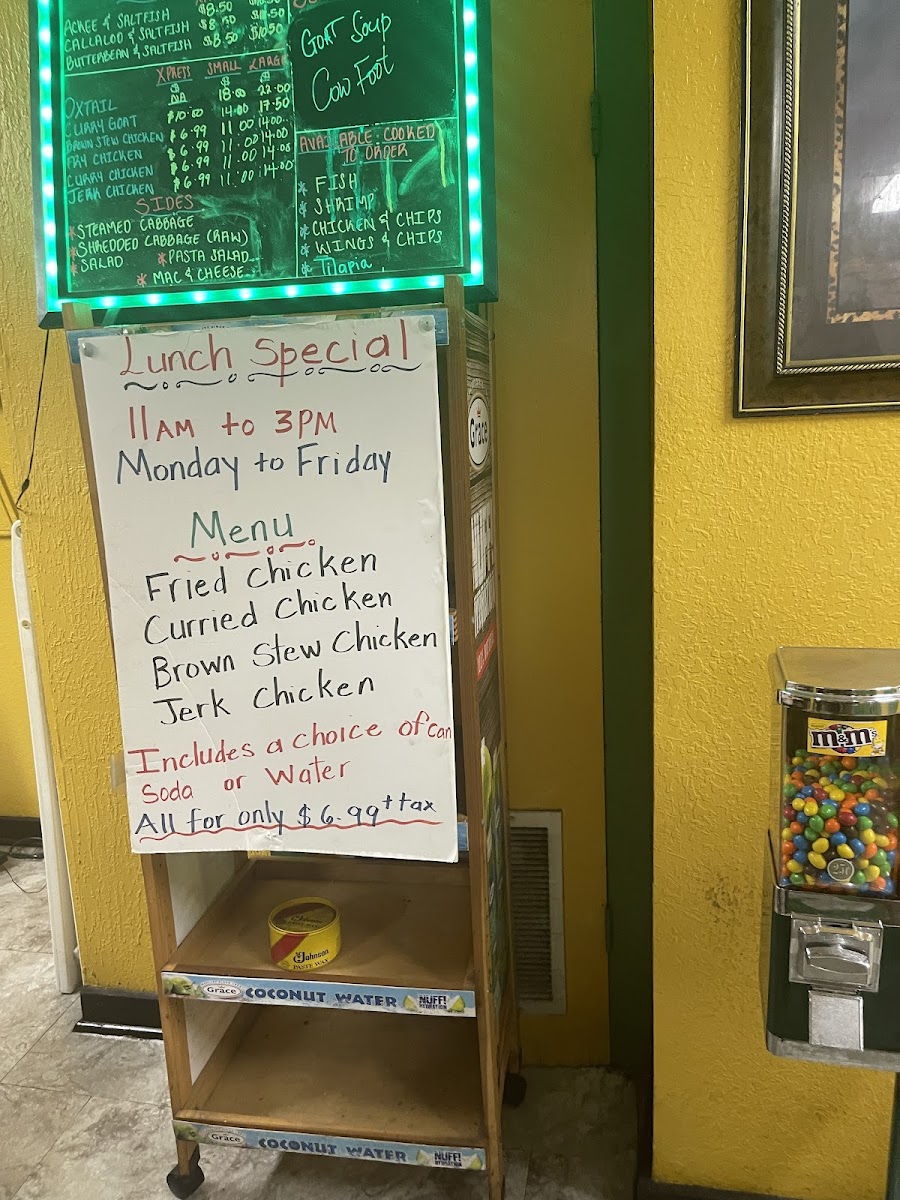 ACKEE & SALTFISH 8.50
CALLALOO & SALTFISH $8.50
BUTTERBEAN & SALTFISH $8.50 $10.50
XPRESS SMALL LARGE
$ $ $
OXTAIL N/A 18.00 22.00
CURRY GOAT $10.00 14.00 17.50
BROWN STEW CHICKEN $6.99 11.00 14.00
FRY CHICKEN $6.99 11.00 14.00
CURRY CHICKEN $6.99 11.00 14.00
JERK CHICKEN $6.99 11.00 14.00
SIDES
*STEAMED CABBAGE
*SHREDDED CABBAGE (RAW)
*SALAD *PASTA SALAD
*MAC & CHEESE
GOAT SOUP
COW FOOT
AVAILABLE COOKED
TO ORDER
* FISH
* SHRIMP
* CHICKEN & CHIPS
* WINGS & CHIPS
* Tilapia
Lunch Special
11AM to 3PM
Monday to Friday
Menu
Fried Chicken
Curried Chicken
Brown Stew Chicken
Jerk Chicken
Includes a choice of can
Soda or Water
All for only $6.99 + tax
Grace
Johnson
PASTE WAX
Grace COCONUT WATER NUFF! HYDRATION
Grace COCONUT WATER NUFF! HYDRATION
m&m's
25¢